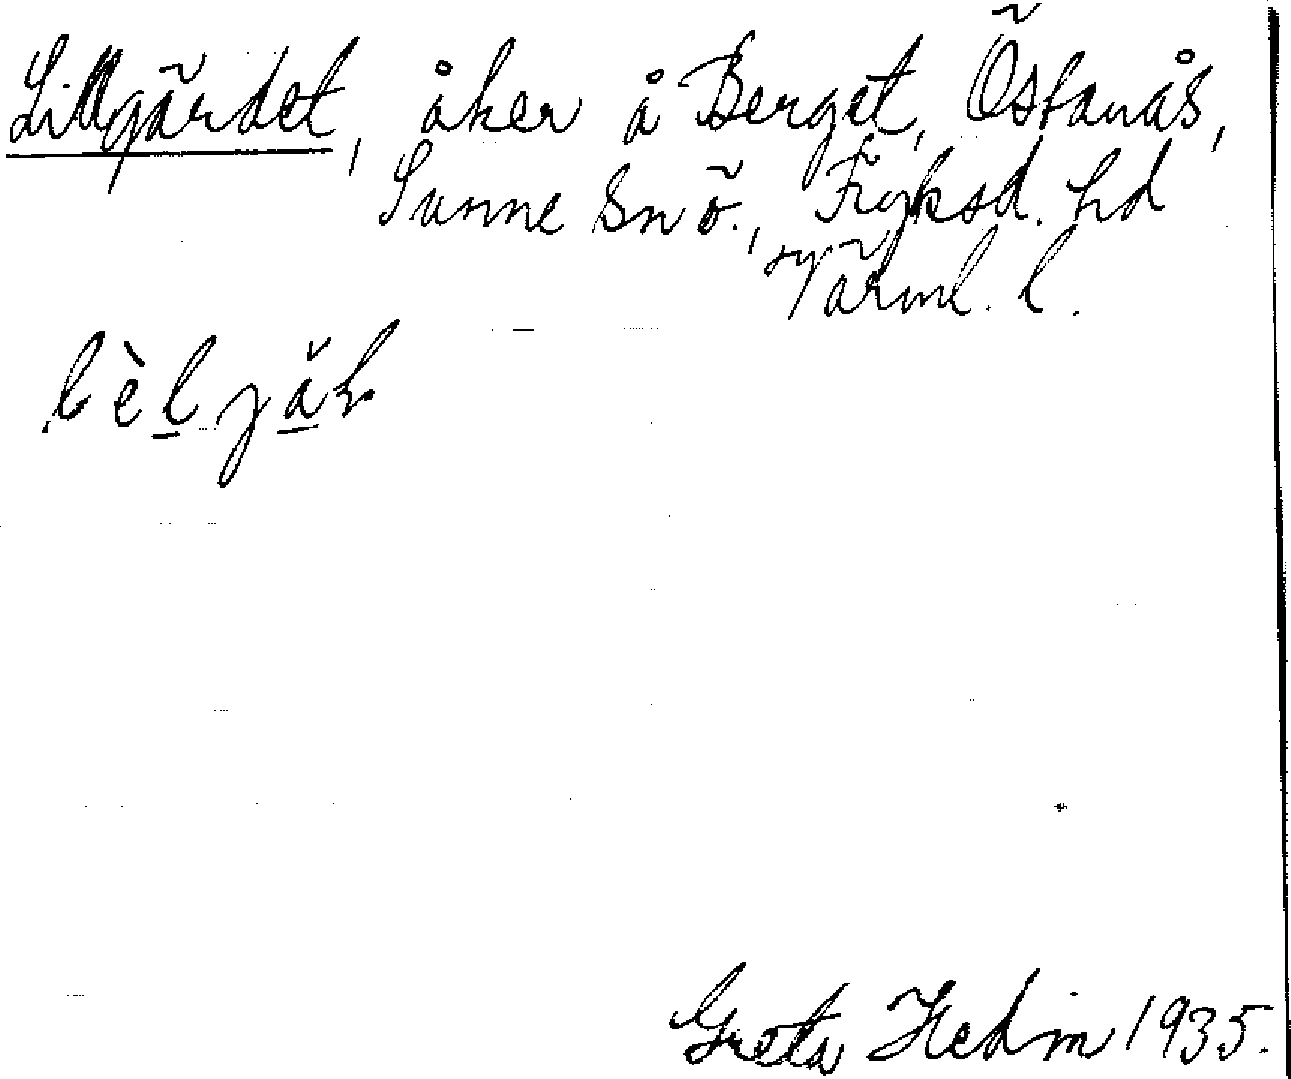 Lillgärdet, åker å Berget, Östanås,
Sunne sn ö., Fryksd. hd
Värml. l.
lèljäL
Greta Hedin 1935.